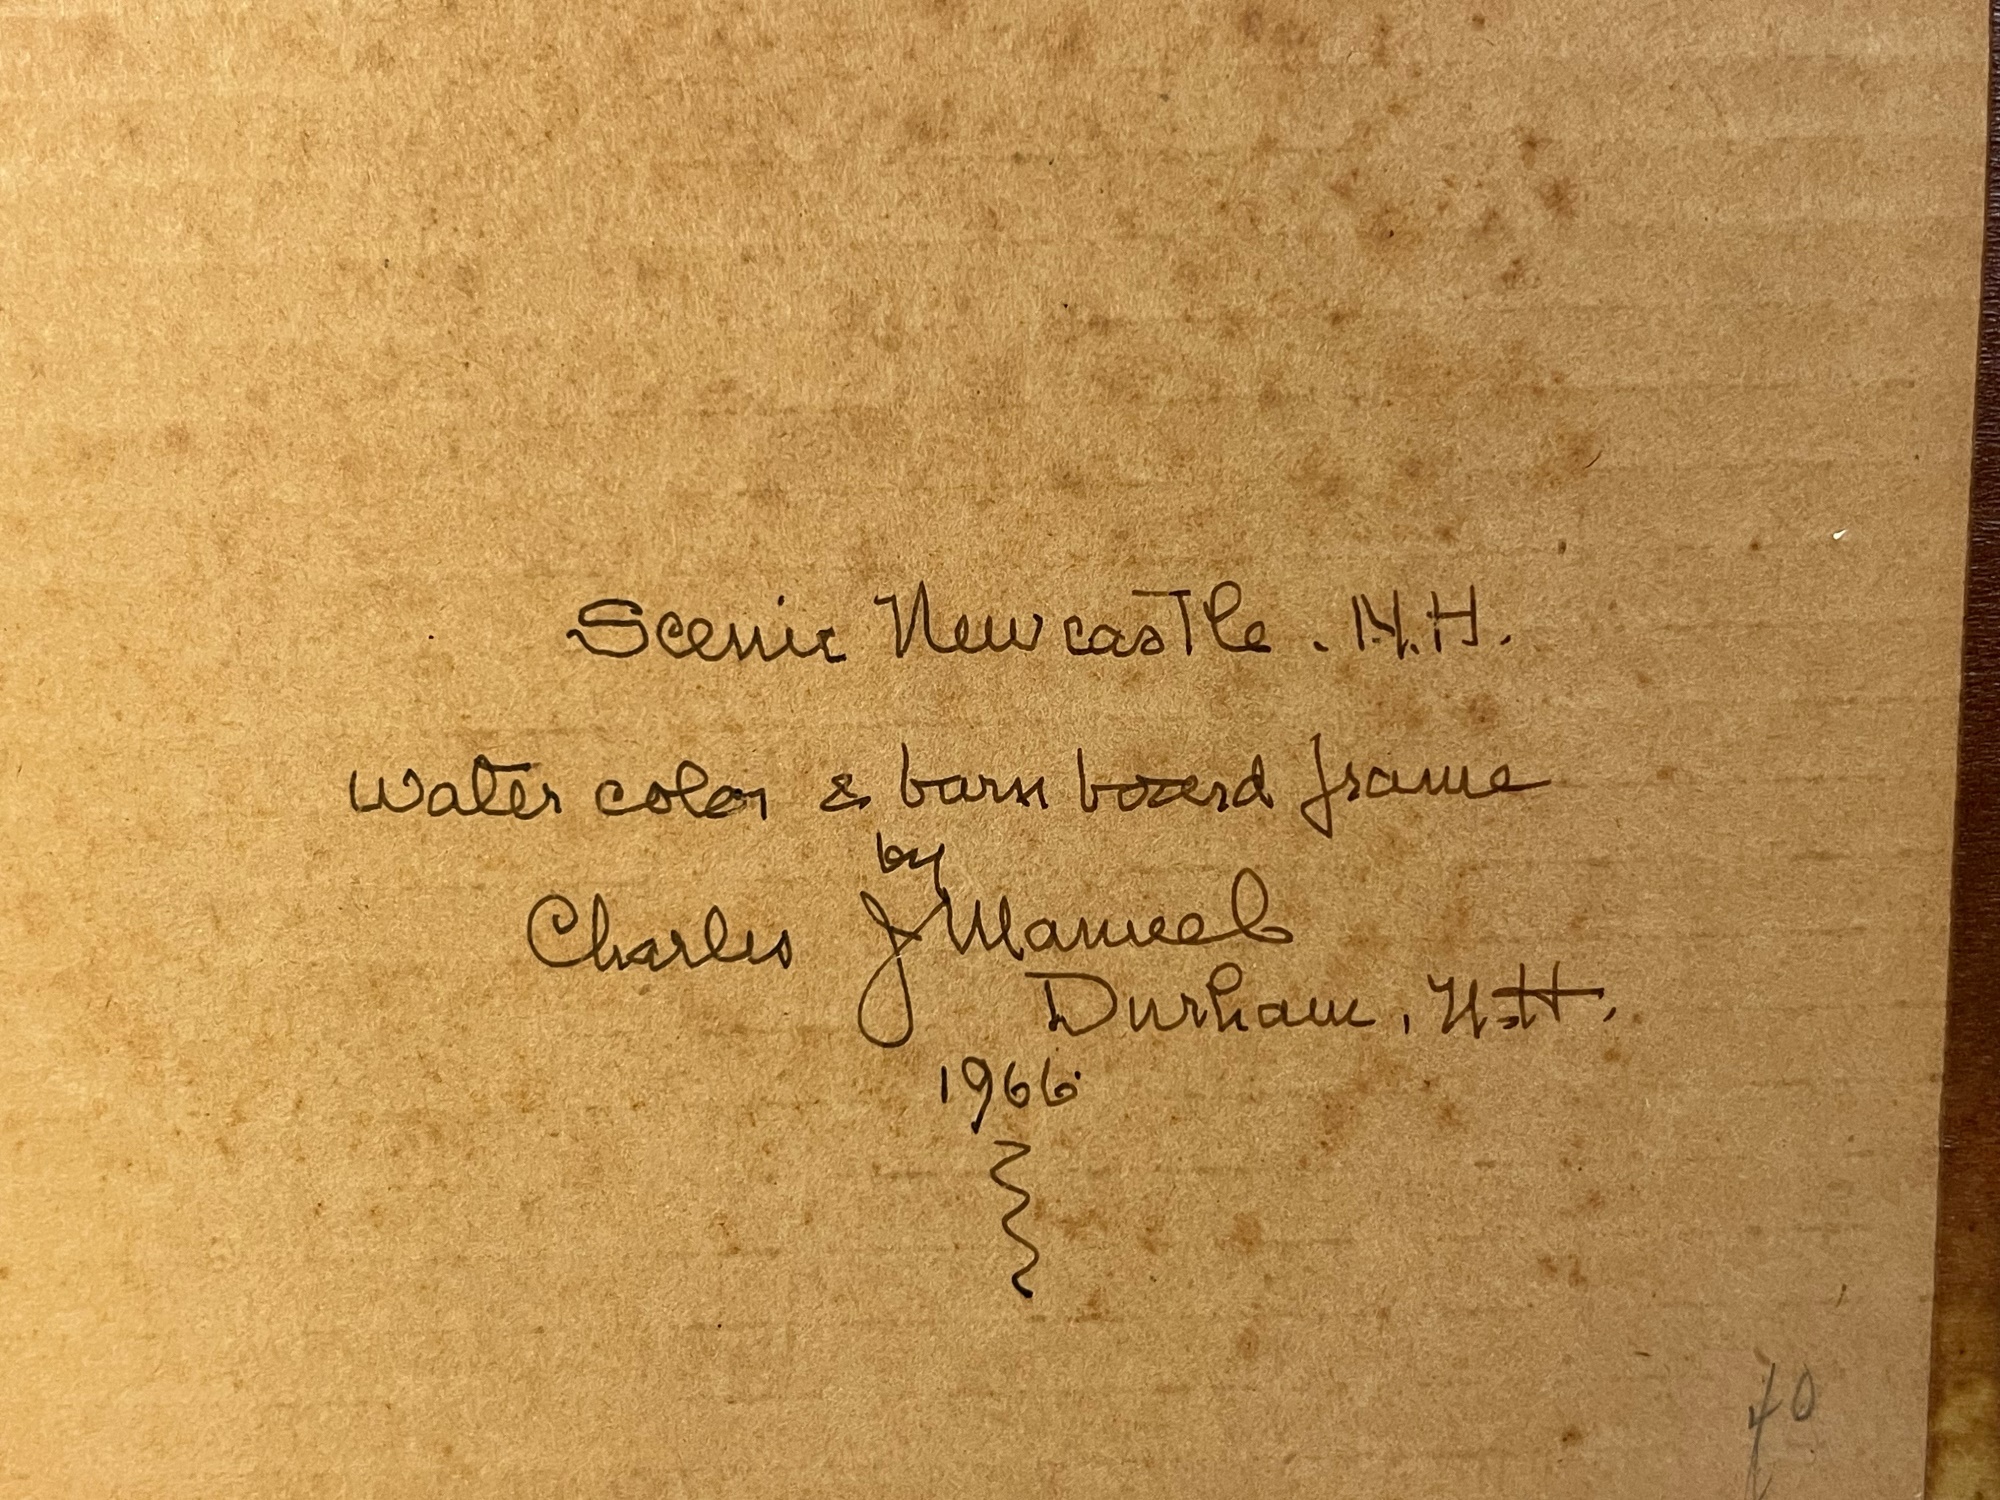 Scenic Newcastle. N.H.
water color & barn board frame
by
Charles J Manuel
Durham, N.H.
1966